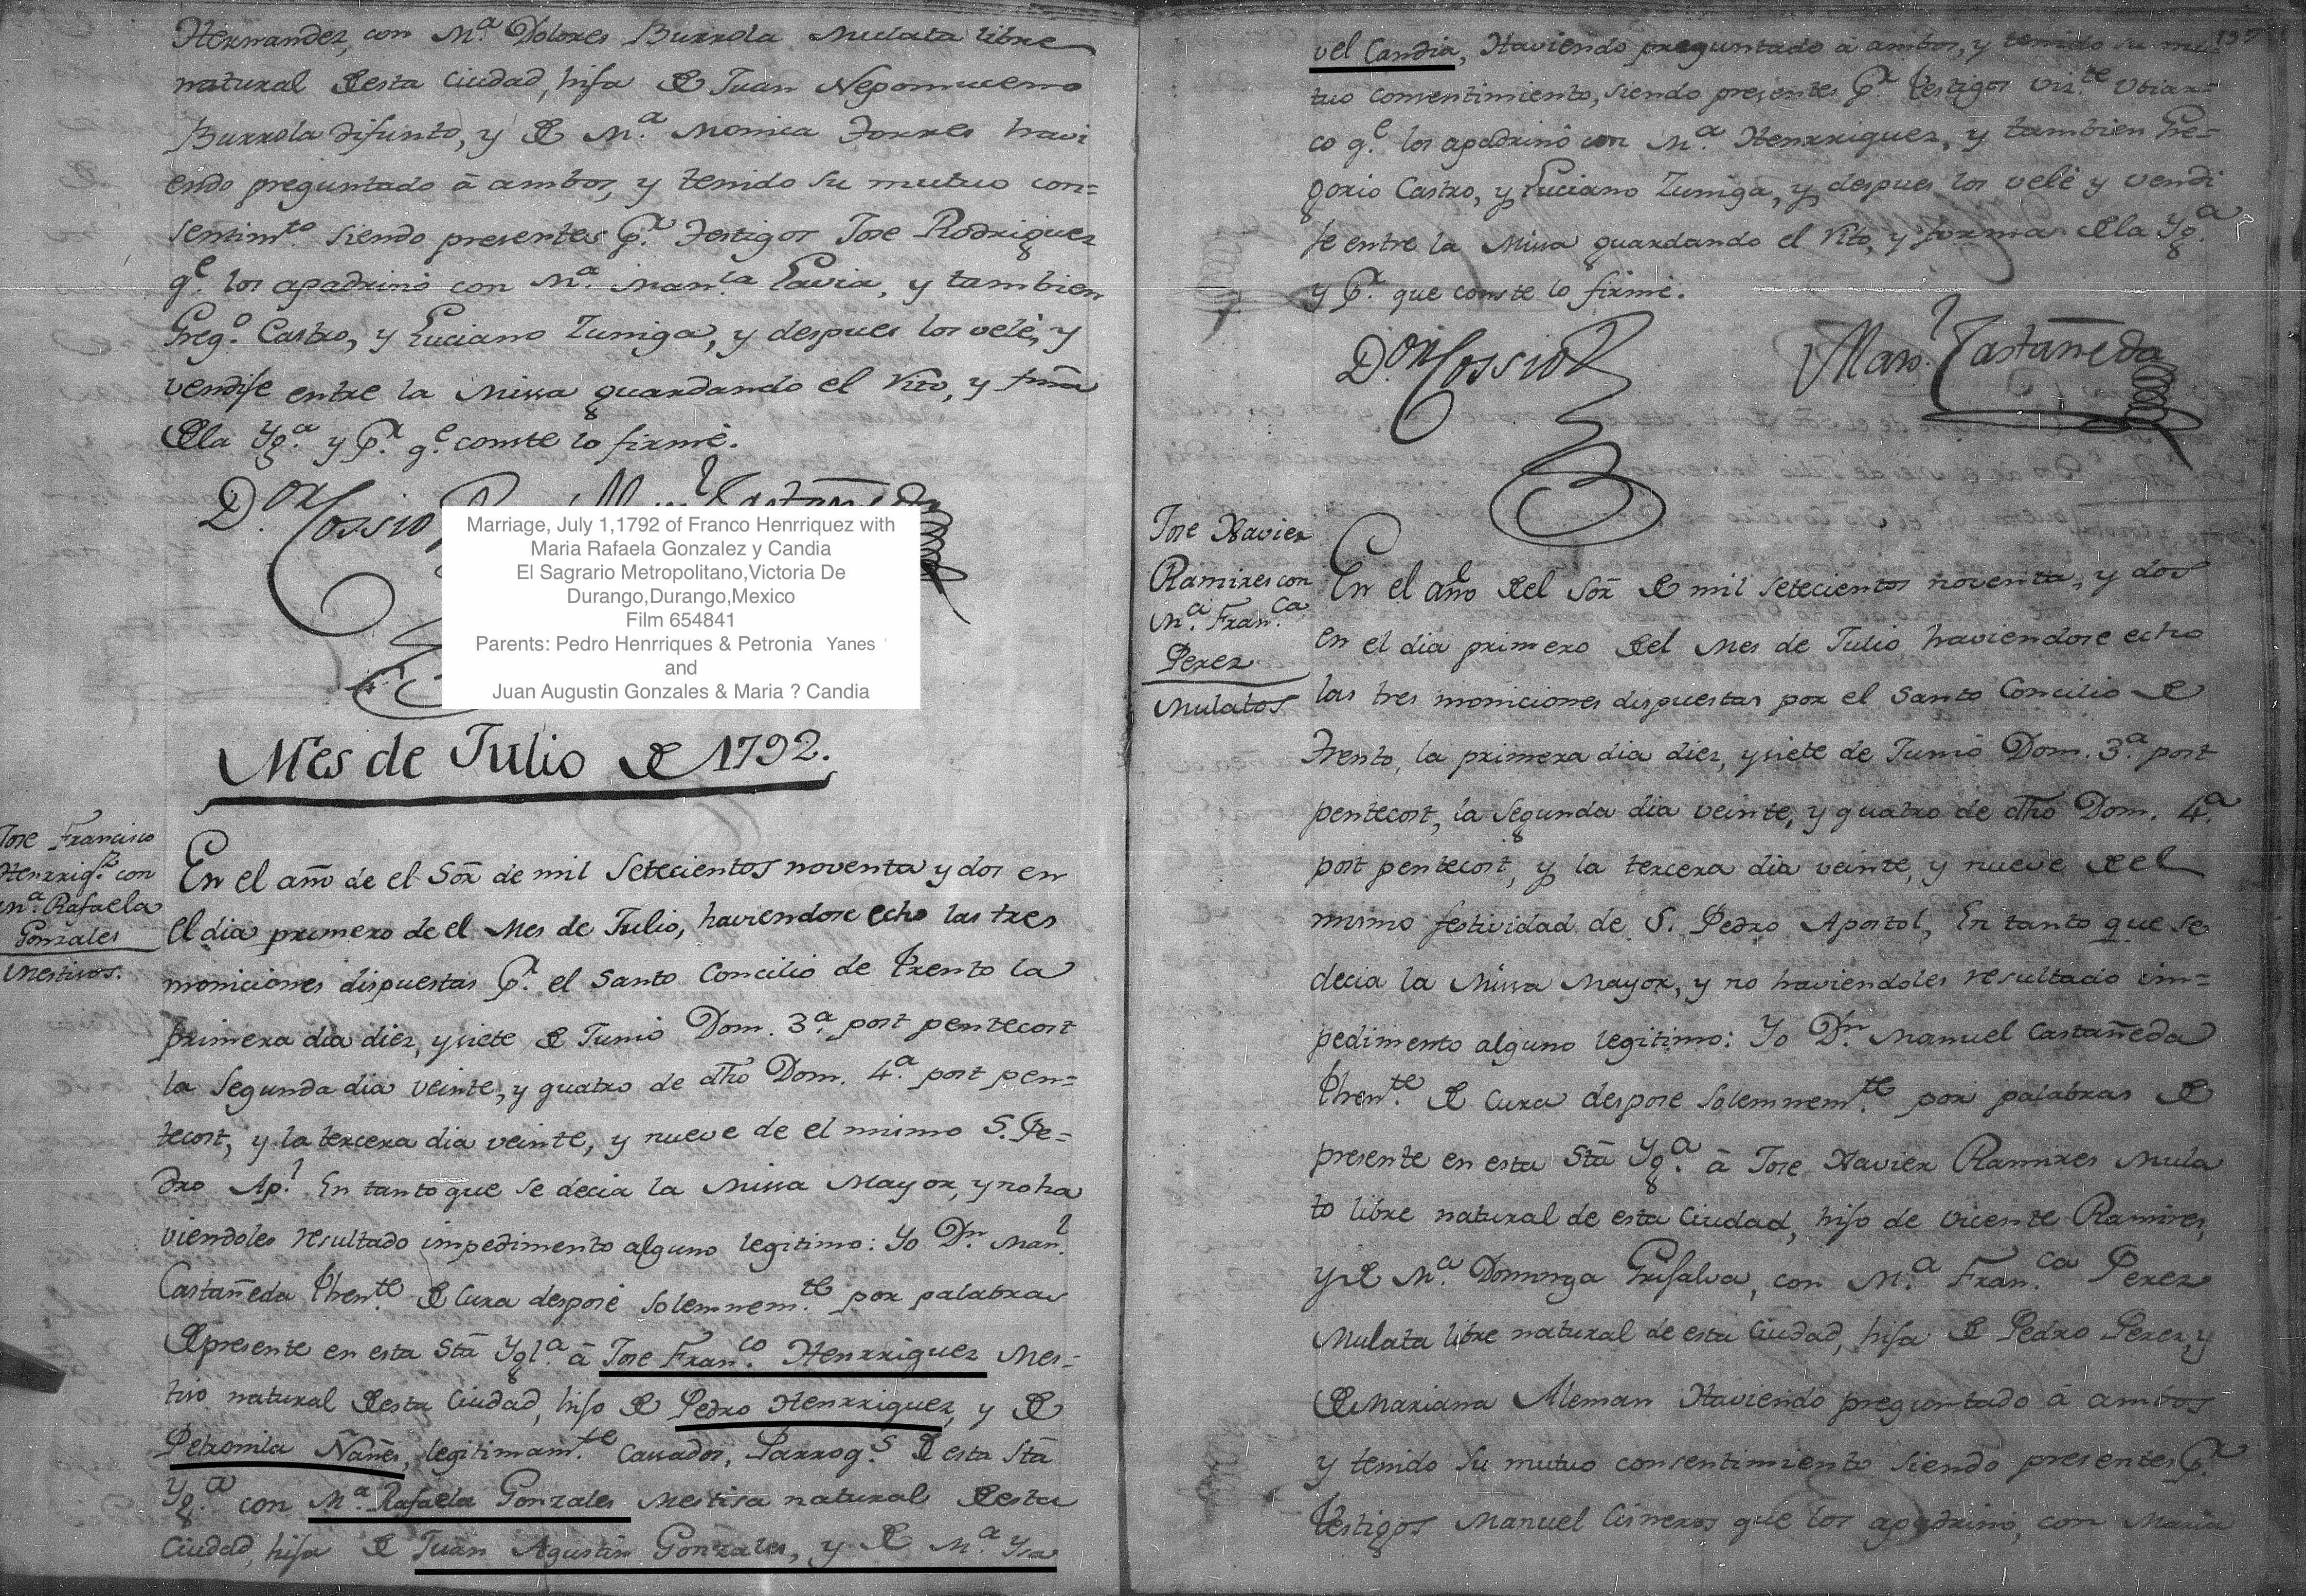 Hernandez, con M.a Dolores Burrola Mulata libre
natural desta Ciudad, hija de Juan Nepomuceno
Burrola difunto, y de M.a Monica Torres havi
endo preguntado â ambos, y tenido su mutuo con=
sentim.to siendo presentes p.r Testigos Jose Rodriguez
q.e los apadrinó con M.a Man.la Gavia, y tambien
Greg.o Castro, y Luciano Zuniga, y despues los velè, y
vendije entre la Missa guardando el Rito, y fma
dla Yg.a y p.r q.e conste lo firmè.
D.or Cossio
Marriage, July 1,1792 of Franco Henrriquez with
Maria Rafaela Gonzalez y Candia
El Sagrario Metropolitano,Victoria De
Durango,Durango,Mexico
Film 654841
Parents: Pedro Henrriques & Petronia Yanes
and
Juan Augustin Gonzales & Maria ? Candia
Mes de Julio de 1792.
Jose Francisco
Henrriq.z con
M.a Rafaela
Gonzales
Mestisos.
En el año de el Sõr de mil Setecientos noventa y dos en
el dia primero de el Mes de Julio, haviendose echo las tres
moniciones dispuestas p.r el Santo Concilio de Trento la
primera dia diez, y siete de Junio Dom. 3.a post pentecost
la segunda dia veinte, y quatro de dho Dom. 4.a post pen=
tecost, y la tercera dia veinte, y nueve de el mismo S. Pe=
dro Ap.l En tanto que se decia la Missa Mayor, y no ha
viendoles resultado impedimento alguno legitimo: Yo D.n Man.l
Castañeda Then.te de Cura desposè solemnem.te por palabras
de presente en esta Stã Ygl.a â Jose Fran.co Henrriquez Mes=
tiso natural desta Ciudad, hijo de Pedro Henrriquez, y de
Petronila Ñañes, legitimam.te Casados, Parrog.s de esta Stã
Yg.a con M.a Rafaela Gonzales Mestisa natural desta
Ciudad, hija de Juan Agustin Gonzales, y de M.a Ysa
137
vel Candia, Haviendo preguntado â ambos, y tenido su mu=
tuo consentimiento, siendo presentes p.r Testigos Viz.te Ubiar=
co q.e los apadrinò con M.a Henrriquez, y tambien Gre=
gorio Castro, y Luciano Zuniga, y despues los velè y vendi
je entre la Missa guardando el Rito, y forma dla Yg.a
y p.r que conste lo firmè.
D.or Cossio
Man.l Castañeda
Jose Xavier
Ramires con
M.a Fran.ca
Perez
Mulatos
En el año del Sõr de mil setecientos noventa, y dos
en el dia primero del Mes de Julio haviendose echo
las tres moniciones dispuestas por el Santo Concilio de
Trento, la primera dia diez, y siete de Junio Dom. 3.a post
pentecost, la segunda dia veinte, y quatro de dho Dom. 4.a
post pentecost, y la tercera dia veinte, y nueve del
mismo festividad de S. Pedro Apostol, En tanto que se
decia la Missa Mayor, y no haviendoles resultado im=
pedimento alguno legitimo: Yo D.n Manuel Castañeda
Then.te de Cura desposè solemnem.te por palabras de
presente en esta Stã Yg.a â Jose Xavier Ramires Mula
to libre natural de esta Ciudad, hijo de Vicente Ramires,
y de M.a Dominga Grijalva, con M.a Fran.ca Perez
Mulata libre natural de esta Ciudad, hija de Pedro Perez, y
de Mariana Aleman Haviendo preguntado â ambos
y tenido su mutuo consentimiento siendo presentes p.r
Testigos Manuel Cisneros que los apadrinò, con Maria